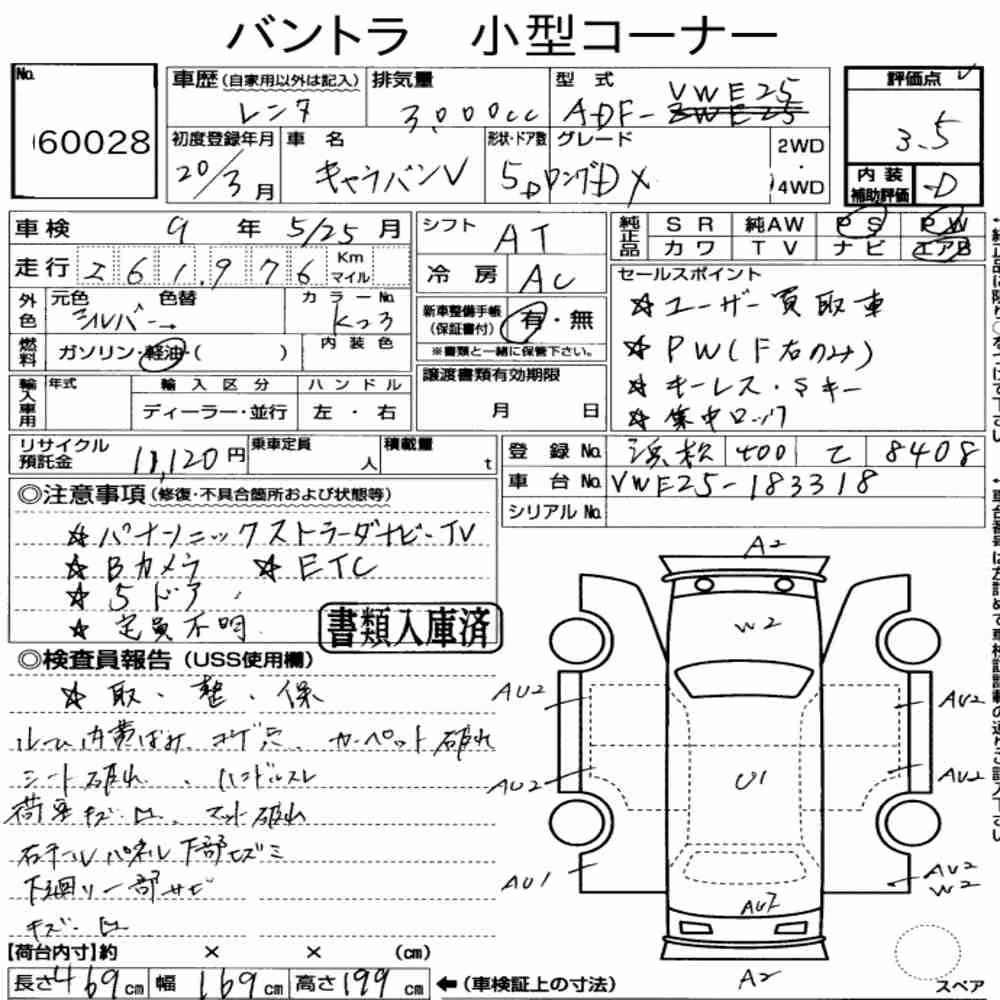 バントラ 小型コーナー
No. 60028
車歴(自家用以外は記入) 排気量 型式 評価点
レンタ 3,000cc ADF- VWE25 3.5
初度登録年月 車名 形状・ドア数 グレード 2WD・4WD 内装補助評価 D
20/3月 キャラバンV 5D ロングDX
車検 9年 5/25月 シフト AT 純正品 SR 純AW PS PW
カワ TV ナビ エアB
走行 261,976 Km マイル 冷房 AC
外色 元色 色替 カラーNo.
シルバー→ K23
燃料 ガソリン・軽油・( ) 内装色
新車整備手帳(保証書付) 有・無
※書類と一緒に保管下さい。
セールスポイント
☆ユーザー買取車
☆PW(F右のみ)
☆キーレス・Sキー
☆集中ロック
輸入車用 年式 輸入区分 ハンドル
ディーラー・並行 左・右
譲渡書類有効期限
月 日
リサイクル預託金 11,120円 乗車定員 人 積載量 t
登録No. 浜松 400 て 8408
車台No. VWE25-183318
シリアルNo.
◎注意事項(修復・不具合箇所および状態等)
☆パナソニックストラーダナビ・TV
☆Bカメラ ☆ETC
☆5ドア
☆定員不明
書類入庫済
◎検査員報告(USS使用欄)
☆取・整・保
ルーム内黄ばみ、コゲ穴、カーペット破れ
シート破れ、ハンドルスレ
荷室キズ・凹、マット破れ
右テールパネル下部ヒズミ
下廻リ一部サビ
キズ・凹
【荷台内寸】約 × × (cm)
長さ469cm 幅169cm 高さ199cm ←(車検証上の寸法)
A2
W2
AU2 AU2
AU2 U1 AU2
AU1 AU2
W2
A2
スペア